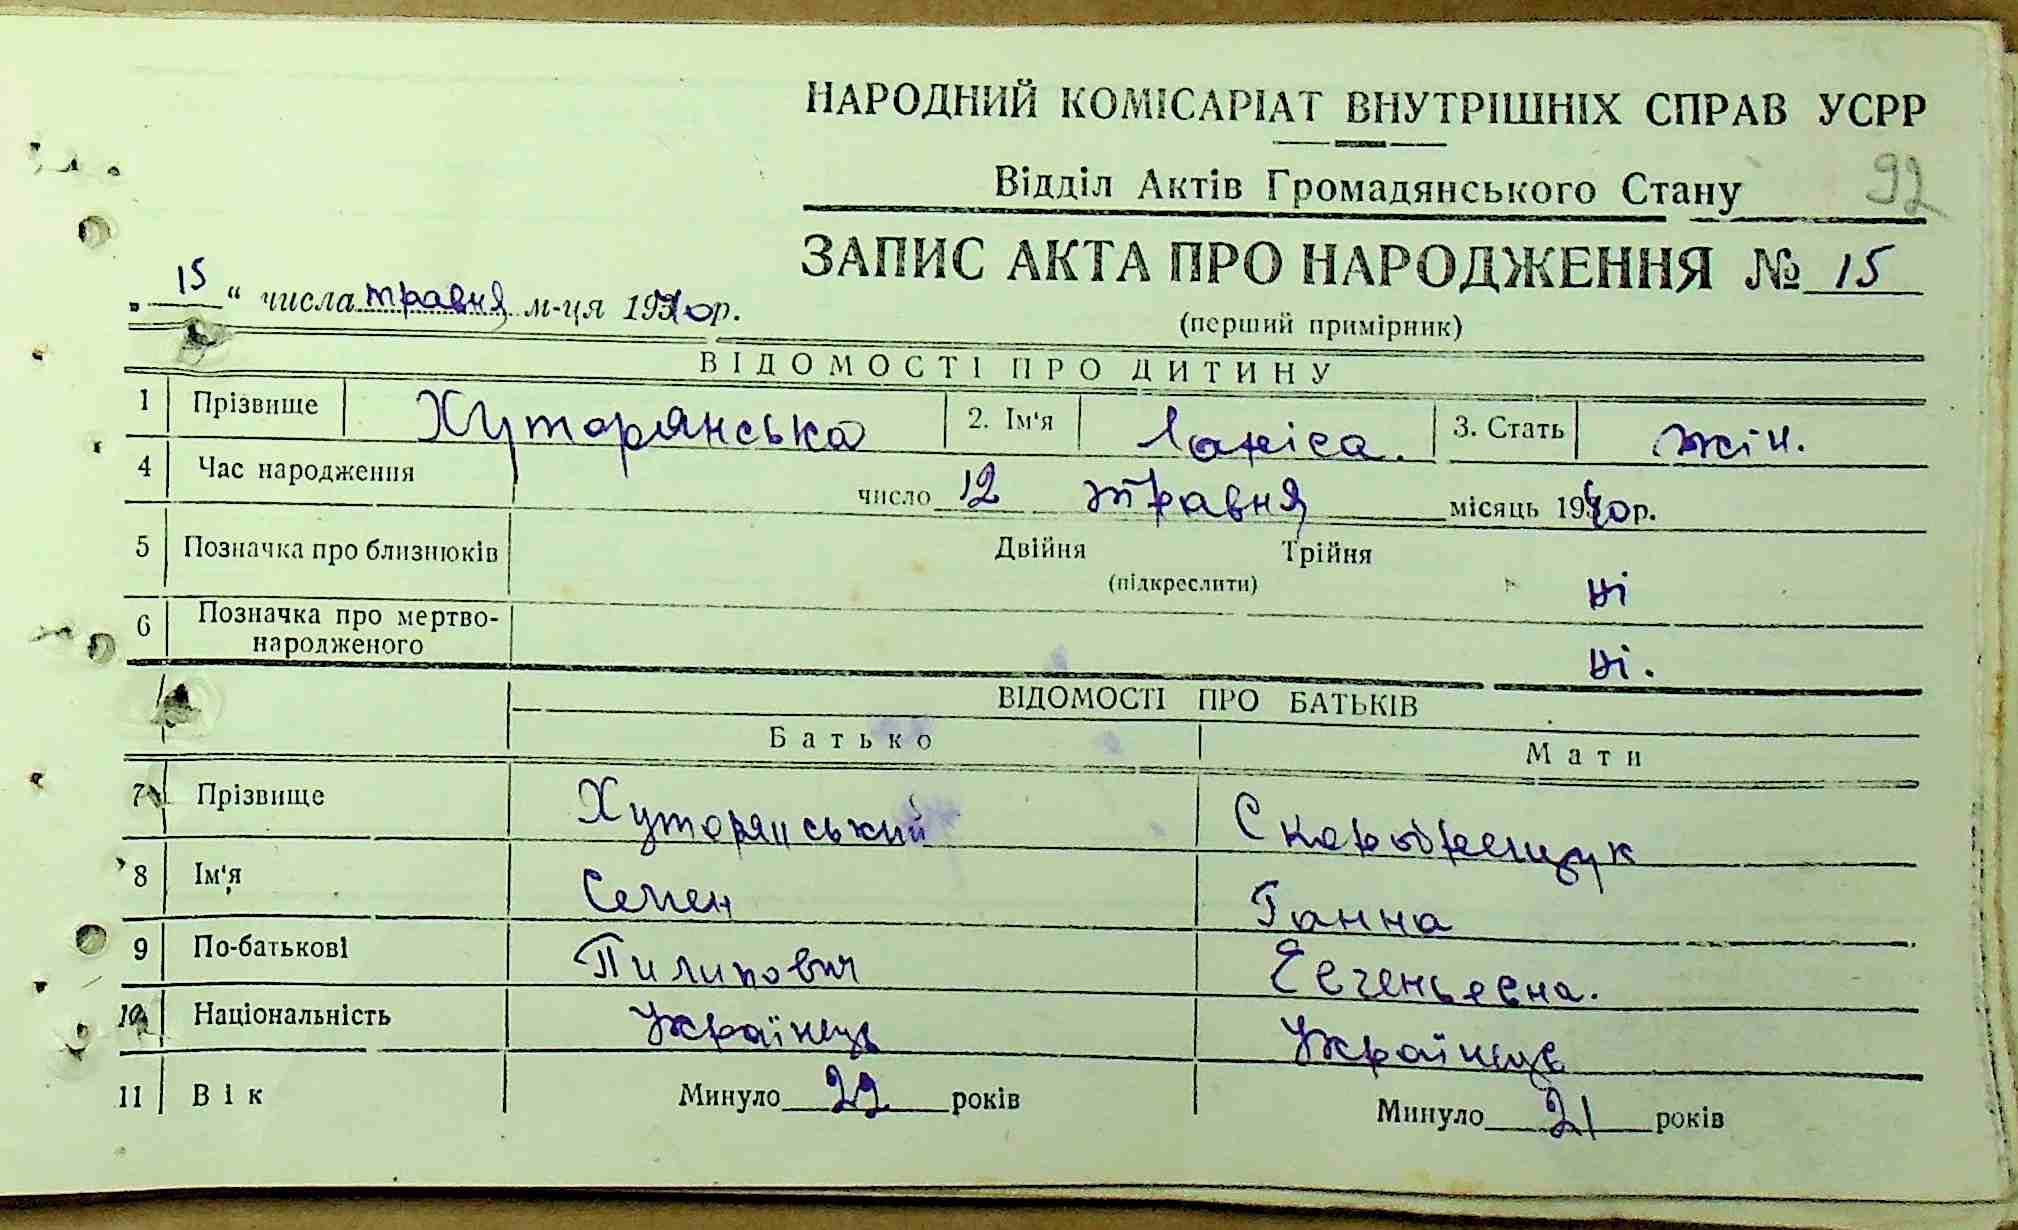 НАРОДНИЙ КОМІСАРІАТ ВНУТРІШНІХ СПРАВ УСРР
Відділ Актів Громадянського Стану 92
ЗАПИС АКТА ПРО НАРОДЖЕННЯ № 15
„15“ числа травня м-ця 1940р.
(перший примірник)
ВІДОМОСТІ ПРО ДИТИНУ
1 Прізвище Хуторянська 2. Ім'я Лариса. 3. Стать жін.
4 Час народження число 12 травня місяць 1940р.
5 Позначка про близнюків Двійня Трійня
(підкреслити) ні
6 Позначка про мертво-
народженого ні.
ВІДОМОСТІ ПРО БАТЬКІВ
Батько Мати
7 Прізвище Хуторянський
8 Ім'я Семен Ганна
9 По-батькові Пилипович Евгеньевна.
10 Національність Українць Українць
11 Вік Минуло 22 років Минуло 21 років